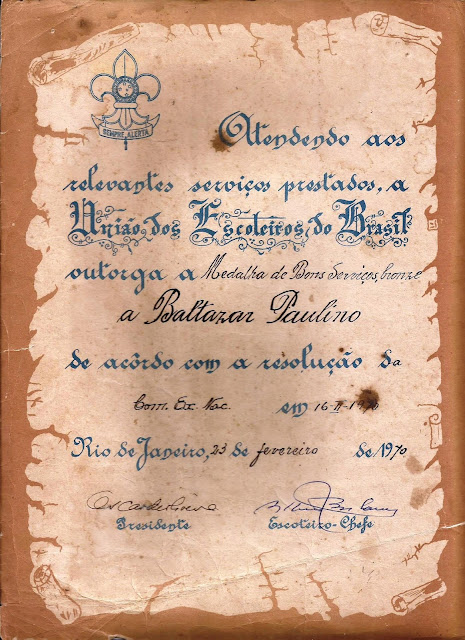 SEMPRE ALERTA
Atendendo aos
relevantes serviços prestados, a
União dos Escoteiros do Brasil
outorga a Medalha de Bons Serviços, bronze
a Baltazar Paulino
de acôrdo com a resolução da
Com. Ex. Nac. em 16-II-1970
Rio de Janeiro, 23 de fevereiro de 1970
Presidente Escoteiro-Chefe